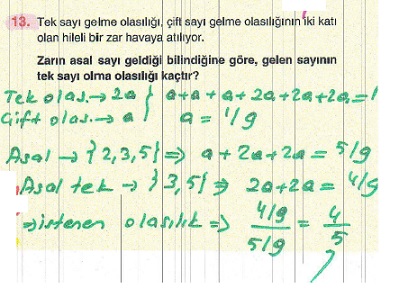 13. Tek sayı gelme olasılığı, çift sayı gelme olasılığının iki katı
olan hileli bir zar havaya atılıyor.
Zarın asal sayı geldiği bilindiğine göre, gelen sayının
tek sayı olma olasılığı kaçtır?
Tek olas. → 2a } a+a+a+2a+2a+2a=1
Çift olas. → a } a = 1/9
Asal → {2,3,5} ⇒ a+2a+2a = 5/9
Asal tek → {3,5} ⇒ 2a+2a = 4/9
⇒ istenen olasılık ⇒ 4/9 / 5/9 = 4/5